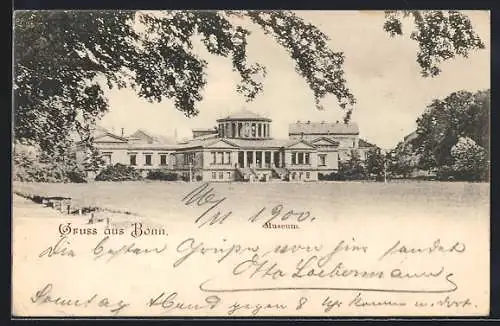 Gruss aus Bonn.
Museum.
1900.
Die besten Grüsse von hier sendet
Otto Liebermann
Sonntag Abend gegen 8 Uhr komme u. dort.